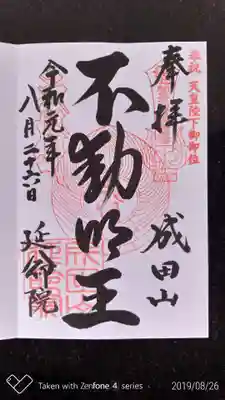 奉祝 天皇陛下御即位
奉拝
成田山
不動明王
令和元年
八月二十六日
延命院
Taken with Zenfone 4 series
2019/08/26